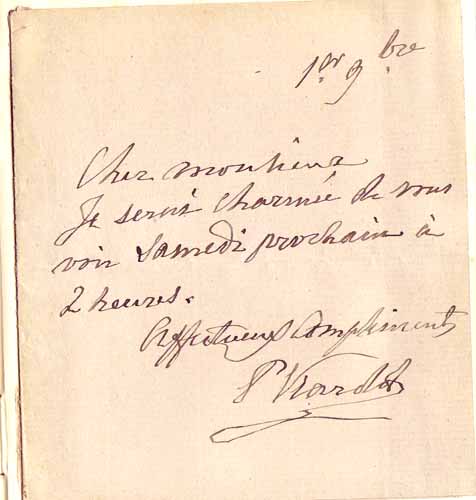 1er 9bre
Cher monsieur
Je serai charmée de vous
voir Samedi prochain à
2 heures.
Affectueux Compliments
P Viardot